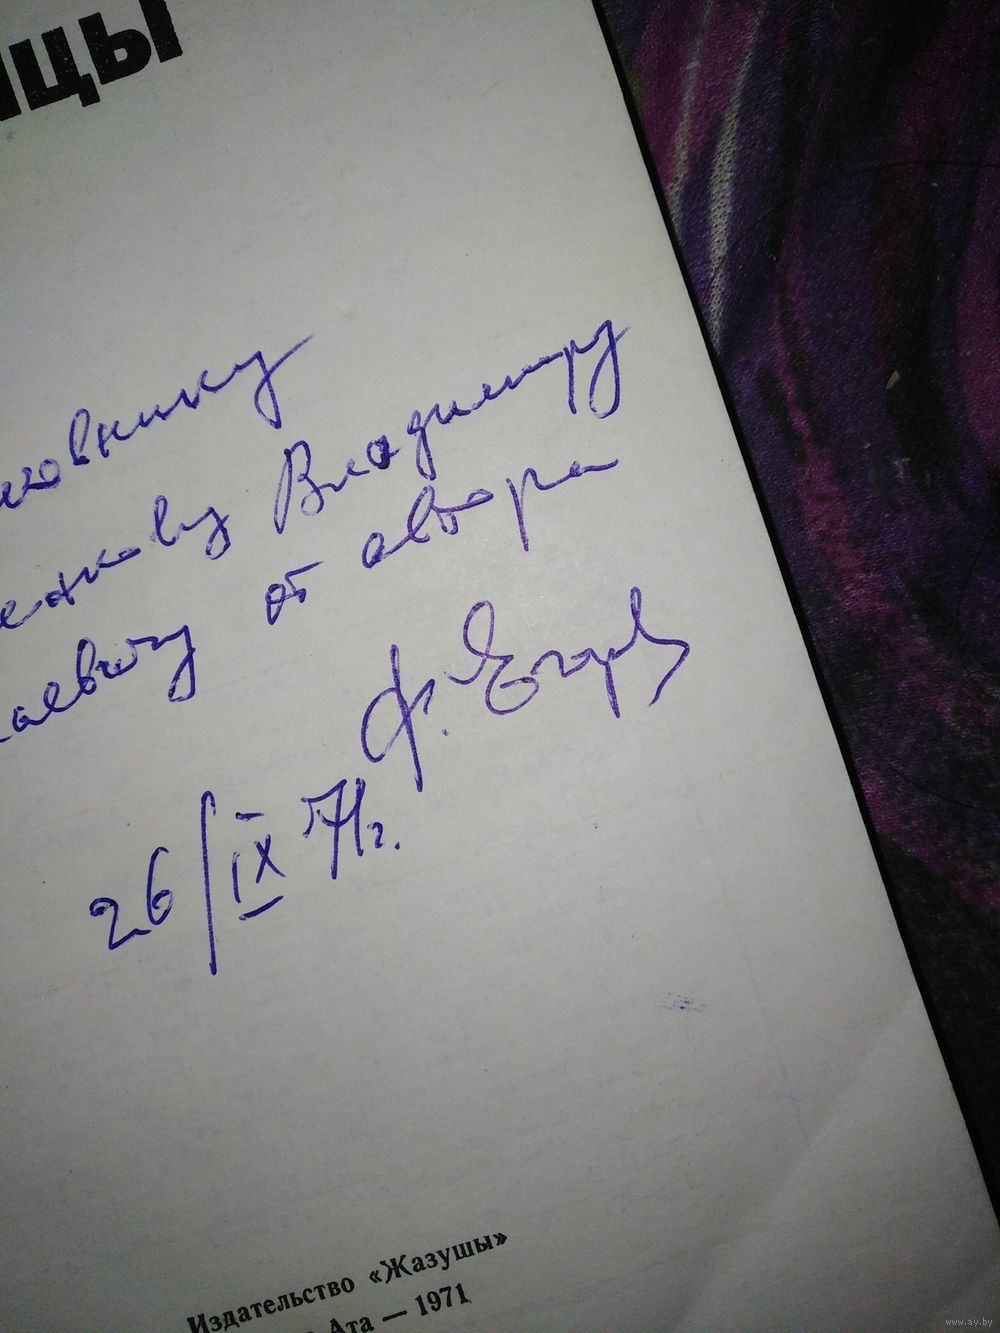 ицы
ковнику
енкову Владимиру
аевичу от автора
Ф. Егоров
26/IX 71г.
Издательство «Жазушы»
Ата — 1971
www.ay.by